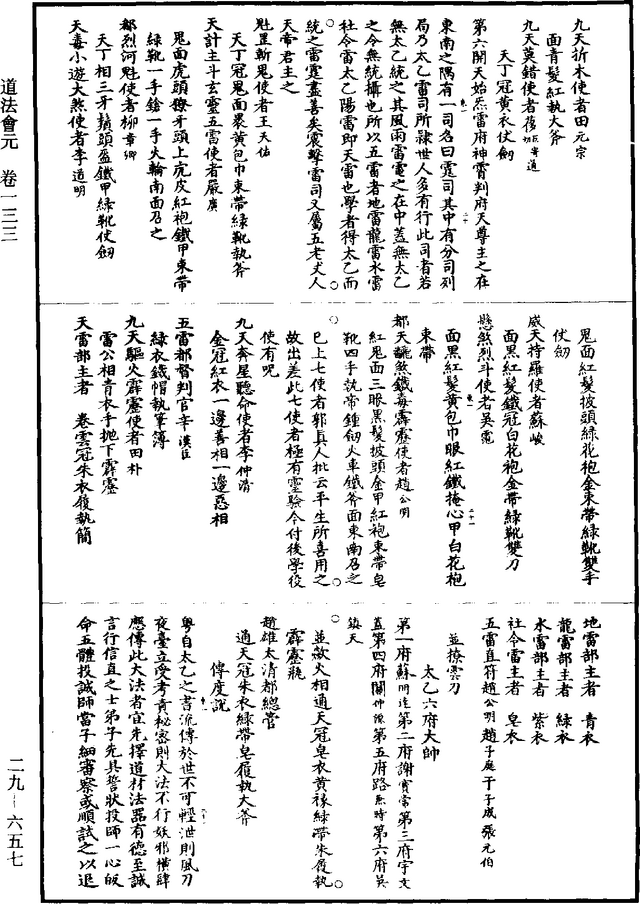 九天折木使者田元宗
面青髮紅執大斧
九天莫錯使者
天丁冠黃衣仗劒
第六開天始炁雷府神霄判府天尊主之在
東南之隅有一司名曰霆司其中有分司列
局乃太乙雷司所隸世人多有行此司者若
無太乙統之其風雨雷電之在中蓋無太乙
之令無統攝也所以五雷者地雷龍雷水雷
社令雷太乙陽雷即天雷也學者得太乙而
統之雷霆盡善矣震擊雷司又屬五老丈人
天帝君主之
魁罡斬鬼使者王天佑
天丁冠鬼面裹黃包巾束帶綠靴執斧
天計主斗玄靈五雷使者嚴廣
鬼面虎頭獠牙頭上虎皮紅袍鐵甲束帶
綠靴一手鎗一手火輪南面召之
都烈河魁使者柳章卿
天丁相三牙鬚頭盔鐵甲綠靴仗劒
天毒小遊大煞使者李道明
鬼面紅髮披頭綠花袍金束帶綠靴雙手
仗劒
威天持羅使者蘇峻
面黑紅髮鐵冠白花袍金帶綠靴雙刀
懸煞烈斗使者吳霓
面黑紅髮黃包巾眼紅鐵掩心甲白花袍
束帶
都天縣煞鐵毒霹靂使者趙公明
紅鬼面三眼黑髮披頭金甲紅袍束帶皂
靴四手執帝鍾劒火車鐵斧面東南召之
已上七使者郭真人批云平生所喜用之
故出差此七使者極有靈驗今付後學役
使有呪
九天奔星聽命使者李仲清
金冠紅衣一邊善相一邊惡相
五雷都督判官辛漢臣
綠衣鐵帽執筆簿
九天驅火霹靂使者田朴
雷公相青衣手拋下霹靂
天雷部主者　卷雲冠朱衣履執簡
地雷部主者　青衣
龍雷部主者　綠衣
水雷部主者　紫衣
社令雷主者　皂衣
五雷直符趙公明趙子庭于子成張元伯
並撩雲刀
太乙六府大帥
第一府蘇明達第二府謝賓常第三府宇文
蓋第四府關仲源第五府路焘時第六府吳
鎮天
並欻火相通天冠皂衣黃褖綠帶朱履執
霹靂瓶
趙雄太清都總管
通天冠朱衣綠帶皂履執大斧
傳度說
粵自太乙之書流傳於世不可輕泄則風刀
夜臺立受考責秘密則大法不行妖邪橫肆
應傳此大法者宜先擇道材法器有德至誠
言行信直之士弟子先具誓狀投師一心皈
命五體投誠師當子細審察或順試之以退
道法會元　卷一三三
二九—六五七